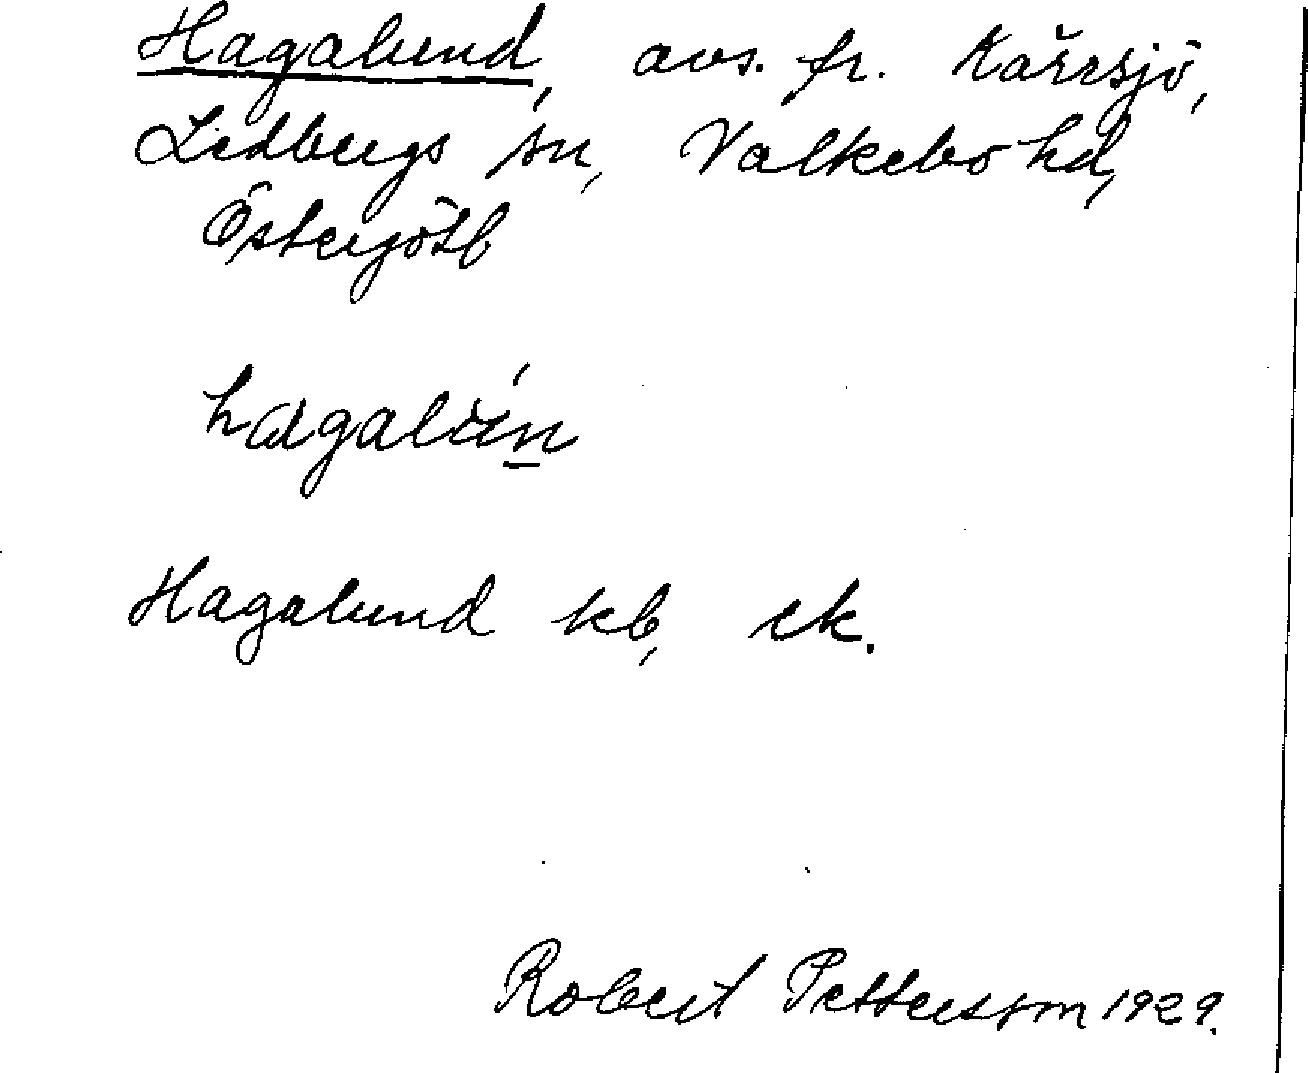 Hagalund, avs. fr. Kärrsjö,
Ledbergs sn, Valkebo hd,
Östergötl
Hagalund kb, ek.
Robert Pettersson 1929.